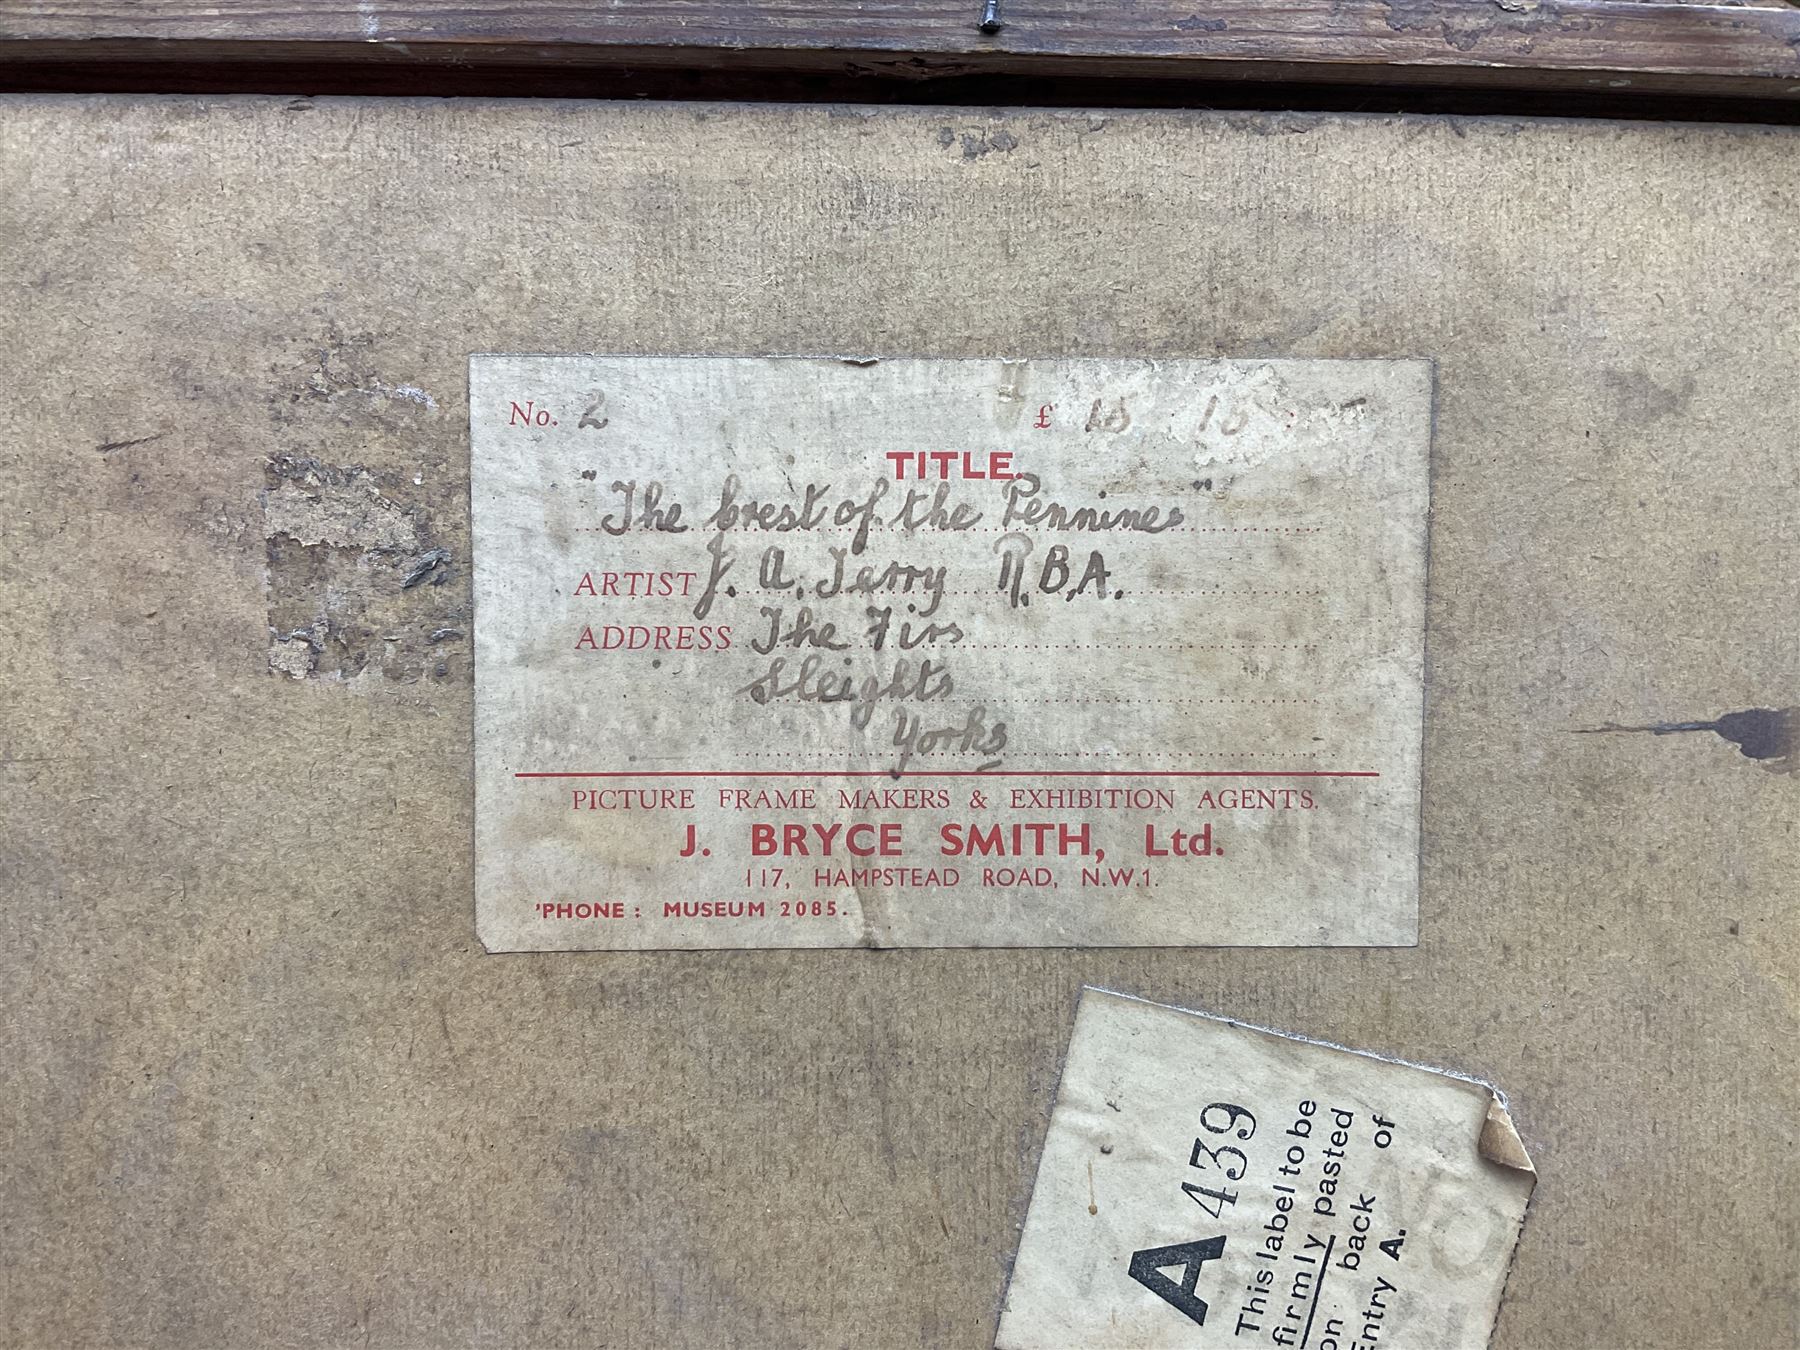 No. 2 £ 15 : 15 : -
TITLE.
"The Crest of the Pennines"
ARTIST J. A. Terry R.B.A.
ADDRESS The Firs
Sleights
Yorks
PICTURE FRAME MAKERS & EXHIBITION AGENTS.
J. BRYCE SMITH, Ltd.
117, HAMPSTEAD ROAD, N.W.1.
'PHONE : MUSEUM 2085.
A 439
This label to be
firmly pasted
on back of
Entry A.